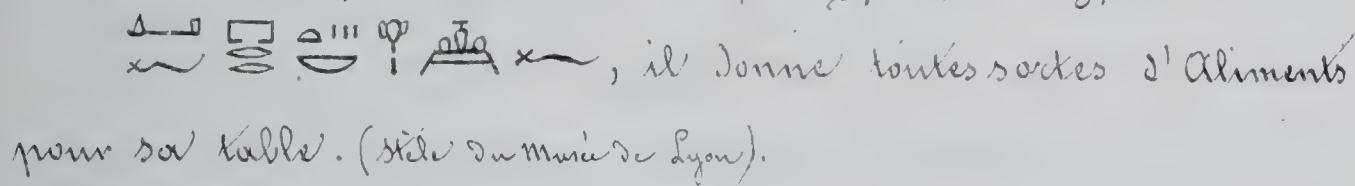 𓂞𓆑 𓉐𓂋𓂋 𓏏𓏥𓎟 𓁷𓏤 𓆑, il donne toutes sortes d'Aliments
pour sa table. (stèle du Musée de Lyon).